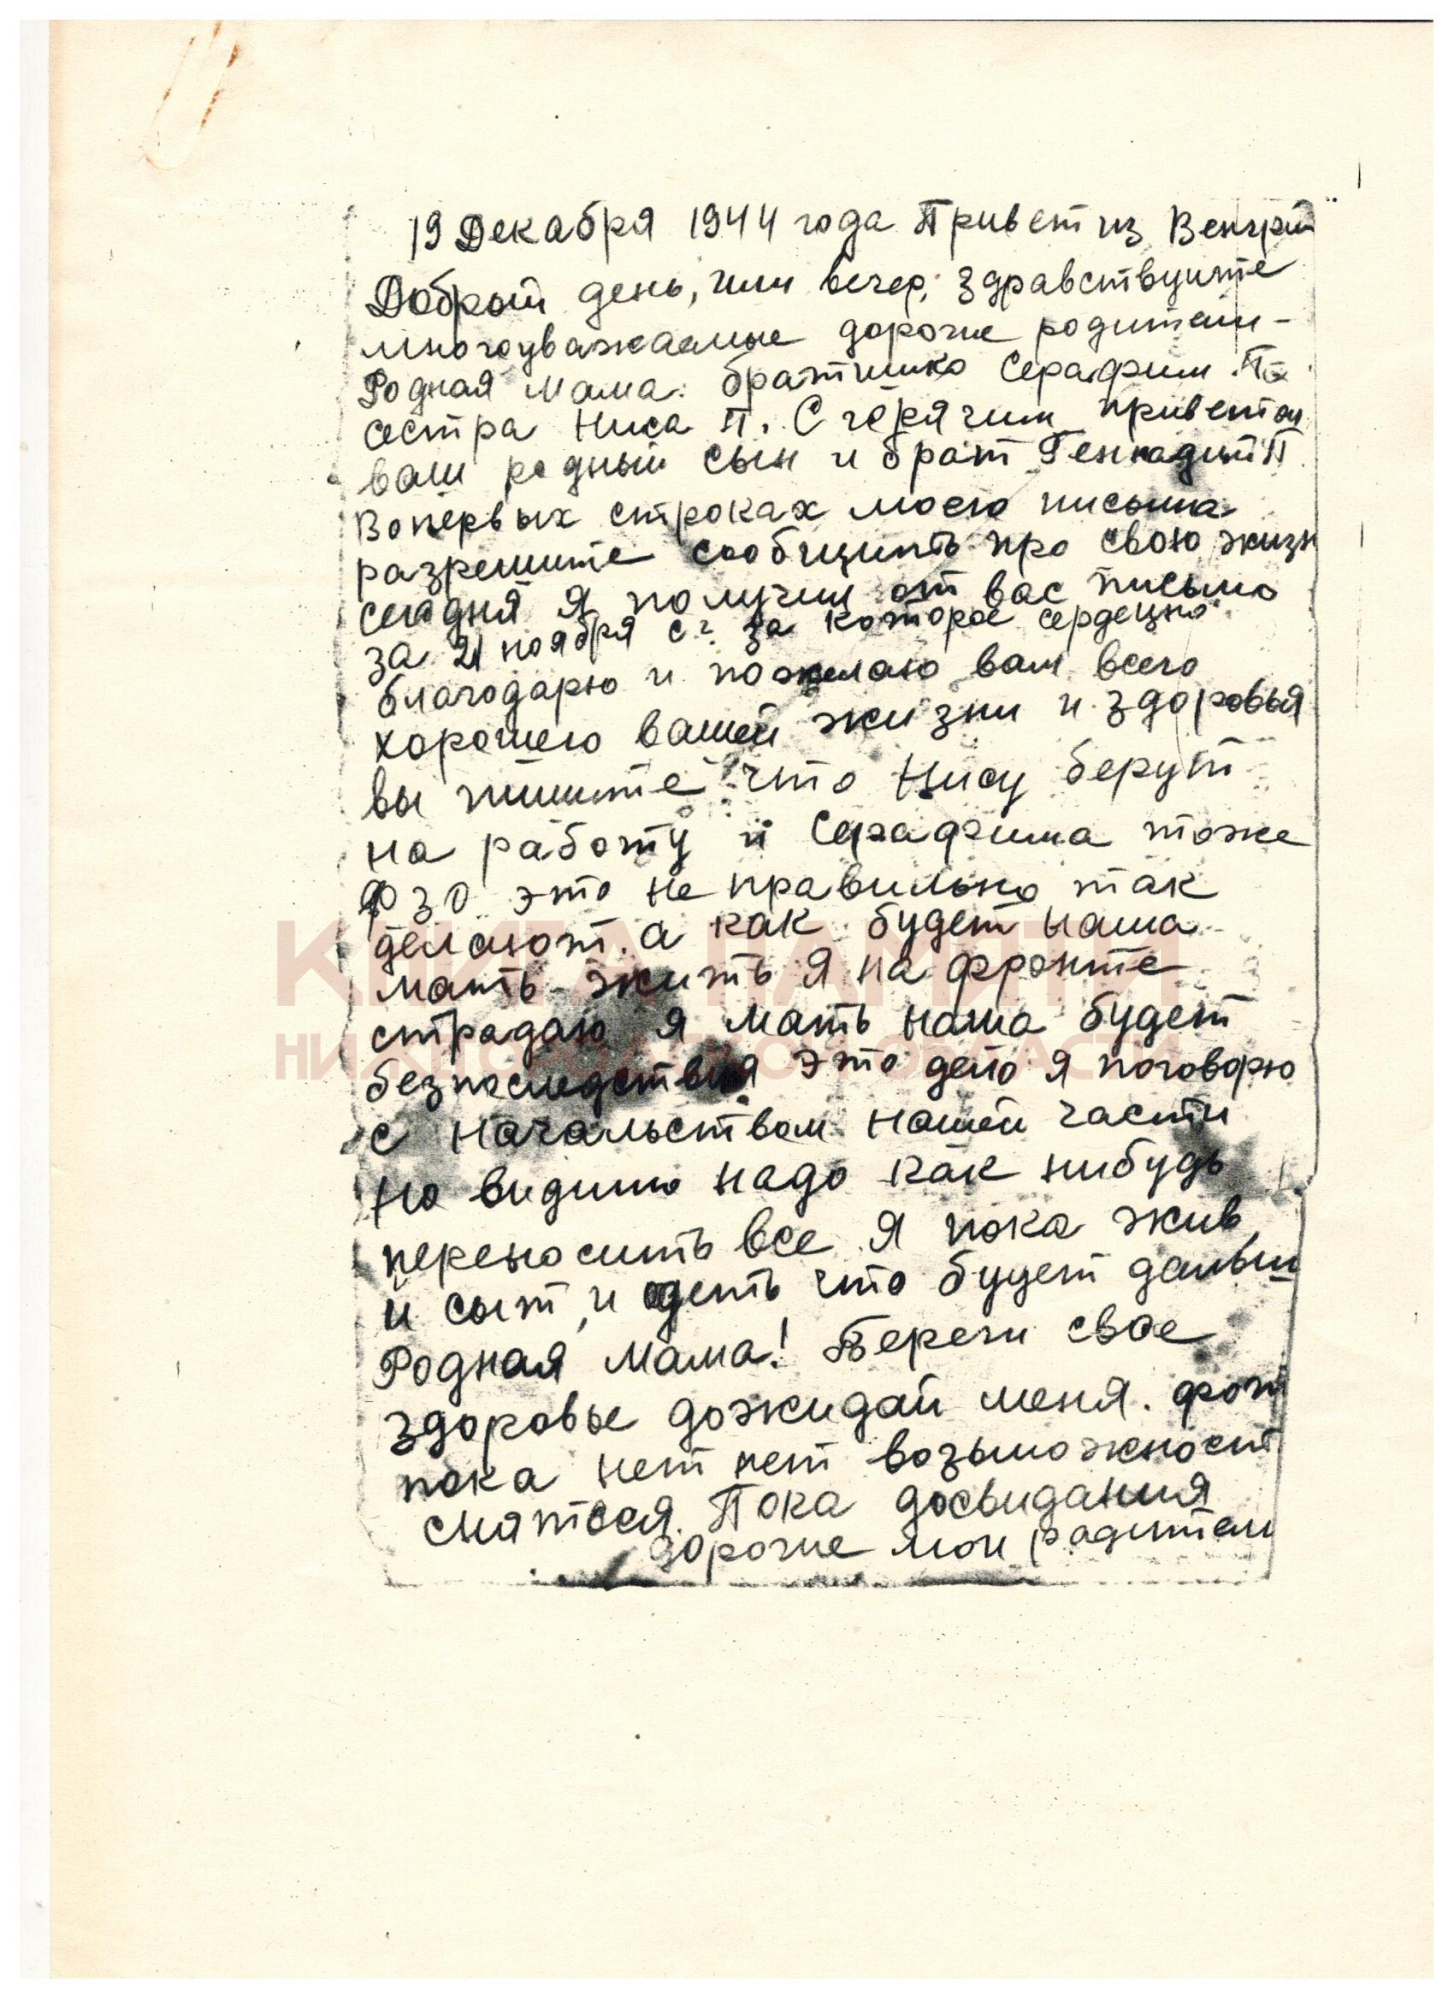 19 Декабря 1944 года Привет из Венгрии
Добрый день, или вечер, здравствуйте
многоуважаемые дорогие родители -
Родная мама. братишко Серафим. П.
сестра Ниса П. С горячим приветом
ваш родный сын и брат Геннадий П
Вопервых строках моего письма
разрешите сообщить про свою жизн
сегодня я получил от вас письмо
за 21 ноября с.г. за которое сердецно
благодарю и пожелаю вам всего
хорошего вашей жизни и здоровья
вы пишите что Нису берут
на работу и Серафима тоже
ФЗО это не правильно так
делают. а как будет наша
мать жить я на фронте
страдаю я мать наша будет
безпоследствия это дело я поговорю
с начальством нашей части
но видимо надо как нибудь
переносить все я пока жив
и сыт, и одеть что будет дальш
Родная мама! Береги свое
здоровье дожидай меня. фот
пока нет нет возьможност
снятся. Пока досвидания
дорогие мои родители
КНИГА ПАМЯТИ
НИЖЕГОРОДСКОЙ ОБЛАСТИ